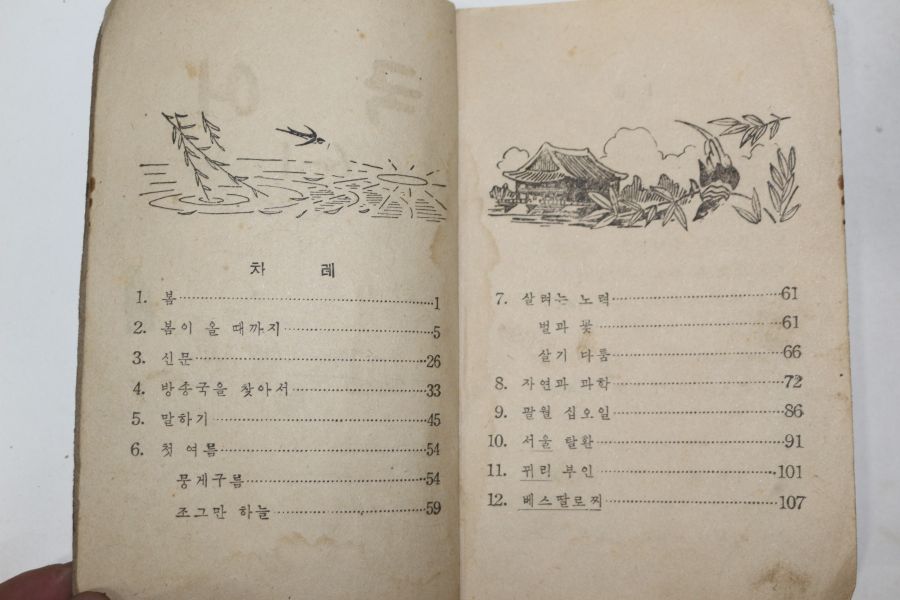 차 레
1. 봄 1
2. 봄이 올 때까지 5
3. 신문 26
4. 방송국을 찾아서 33
5. 말하기 45
6. 첫 여름 54
뭉게구름 54
조그만 하늘 59
7. 살려는 노력 61
벌과 꽃 61
살기 다툼 66
8. 자연과 과학 72
9. 팔월 십오일 86
10. 서울 탈환 91
11. 퀴리 부인 101
12. 베스딸로찌 107